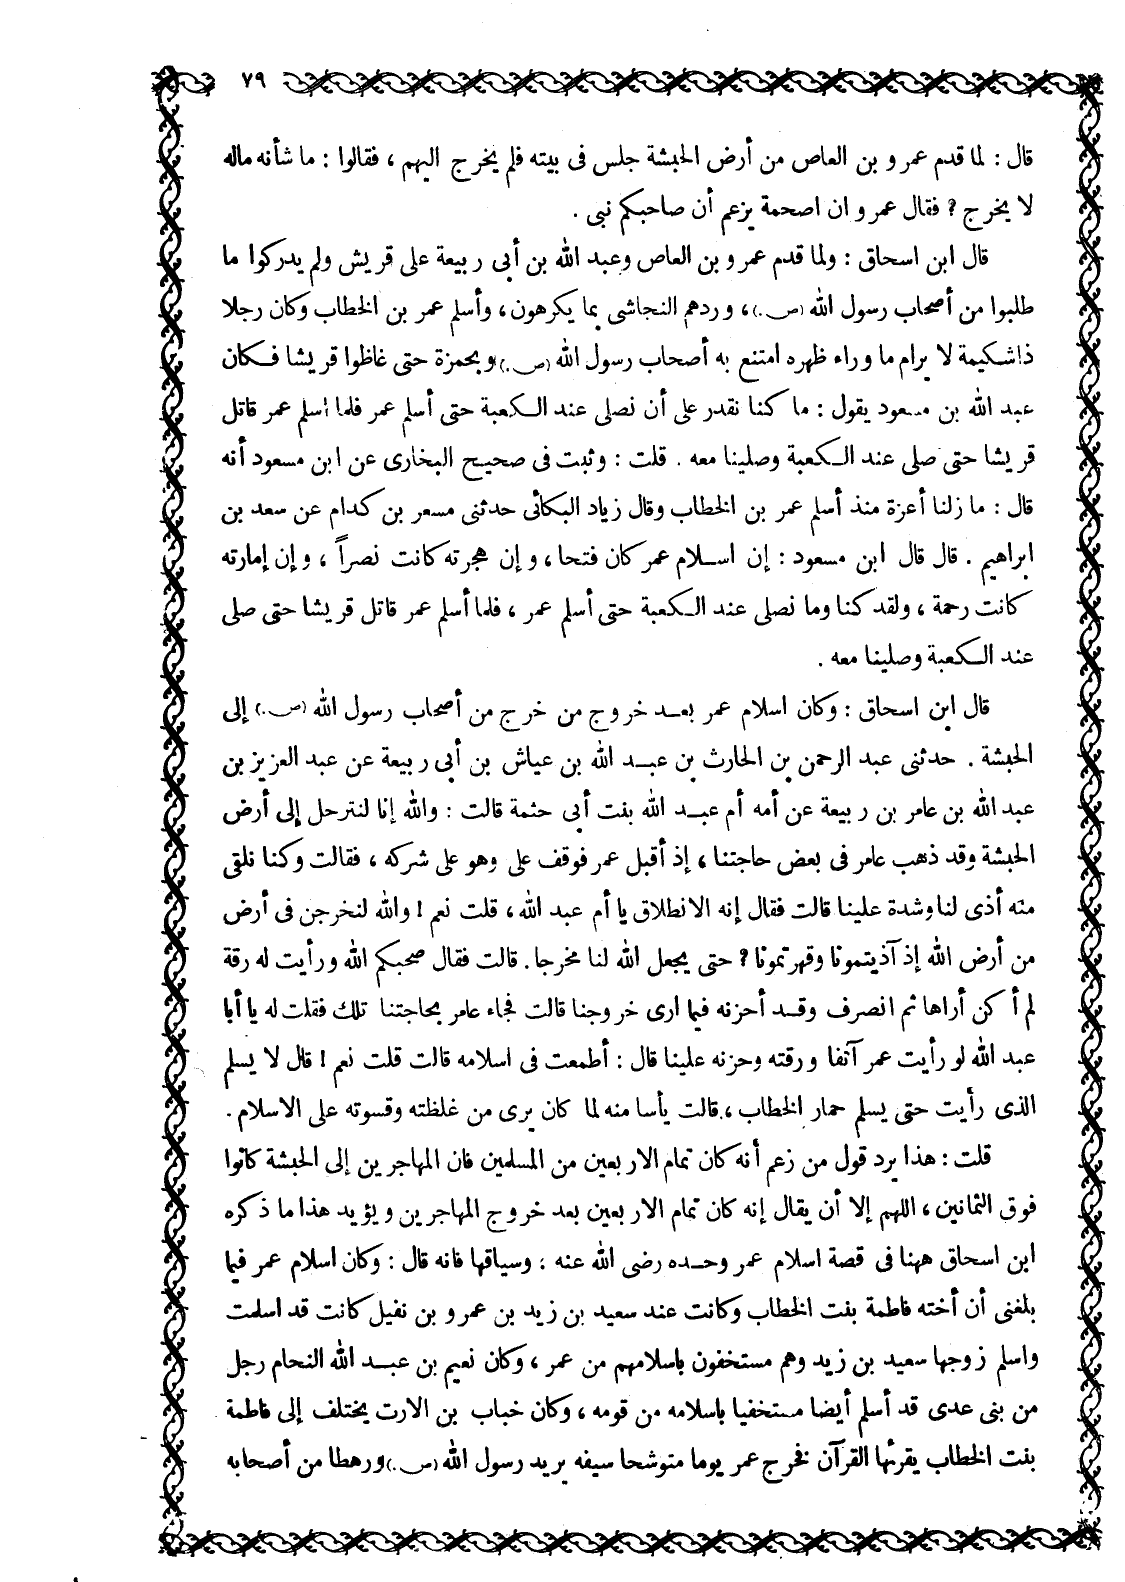 ٧٩
قال : لما قدم عمرو بن العاص من أرض الحبشة جلس فى بيته فلم يخرج اليهم ، فقالوا : ما شأنه ماله
لا يخرج ؟ فقال عمرو ان اصحمة يزعم أن صاحبكم نبى .
قال ابن اسحاق : ولما قدم عمرو بن العاص وعبد الله بن أبى ربيعة على قريش ولم يدركوا ما
طلبوا من أصحاب رسول الله (ص.) ، وردهم النجاشى بما يكرهون ، وأسلم عمر بن الخطاب وكان رجلا
ذا شكيمة لا يرام ما وراء ظهره امتنع به أصحاب رسول الله (ص.) وبحمزة حتى غاظوا قريشا فكان
عبد الله بن مسعود يقول : ما كنا نقدر على أن نصلى عند الكعبة حتى أسلم عمر فلما اسلم عمر قاتل
قريشا حتى صلى عند الكعبة وصلينا معه . قلت : وثبت فى صحيح البخارى عن ابن مسعود أنه
قال : ما زلنا أعزة منذ أسلم عمر بن الخطاب وقال زياد البكائى حدثنى مسعر بن كدام عن سعد بن
ابراهيم . قال قال ابن مسعود : إن اسلام عمر كان فتحا ، وإن هجرته كانت نصراً ، وإن إمارته
كانت رحمة ، ولقد كنا وما نصلى عند الكعبة حتى أسلم عمر ، فلما أسلم عمر قاتل قريشا حتى صلى
عند الكعبة وصلينا معه .
قال ابن اسحاق : وكان اسلام عمر بعد خروج من خرج من أصحاب رسول الله (ص.) إلى
الحبشة . حدثنى عبد الرحمن بن الحارث بن عبد الله بن عياش بن أبى ربيعة عن عبد العزيز بن
عبد الله بن عامر بن ربيعة عن أمه أم عبد الله بنت أبى حثمة قالت : والله إنا لنترحل إلى أرض
الحبشة وقد ذهب عامر فى بعض حاجتنا ، إذ أقبل عمر فوقف على وهو على شركه ، فقالت وكنا نلقى
منه أذى لنا وشدة علينا قالت فقال إنه الانطلاق يا أم عبد الله ، قلت نعم ! والله لنخرجن فى أرض
من أرض الله إذ آذيتمونا وقهرتمونا ؟ حتى يجعل الله لنا مخرجا . قالت فقال صحبكم الله ورأيت له رقة
لم أكن أراها ثم انصرف وقد أحزنه فيما ارى خروجنا قالت فجاء عامر بحاجتنا تلك فقلت له يا أبا
عبد الله لو رأيت عمر آنفا ورقته وحزنه علينا قال : أطمعت فى اسلامه قالت قلت نعم ! قال لا يسلم
الذى رأيت حتى يسلم حمار الخطاب ، قالت يأسا منه لما كان يرى من غلظته وقسوته على الاسلام .
قلت : هذا يرد قول من زعم أنه كان تمام الاربعين من المسلمين فان المهاجرين إلى الحبشة كانوا
فوق الثمانين ، اللهم إلا أن يقال إنه كان تمام الاربعين بعد خروج المهاجرين ويؤيد هذا ما ذكره
ابن اسحاق ههنا فى قصة اسلام عمر وحده رضى الله عنه ؛ وسياقها فانه قال : وكان اسلام عمر فيما
بلغنى أن أخته فاطمة بنت الخطاب وكانت عند سعيد بن زيد بن عمرو بن نفيل كانت قد اسلمت
واسلم زوجها سعيد بن زيد وهم مستخفون باسلامهم من عمر ، وكان نعيم بن عبد الله النحام رجل
من بنى عدى قد أسلم أيضا مستخفيا باسلامه من قومه ، وكان خباب بن الارت يختلف إلى فاطمة
بنت الخطاب يقرئها القرآن فخرج عمر يوما متوشحا سيفه يريد رسول الله (ص.) ورهطا من أصحابه